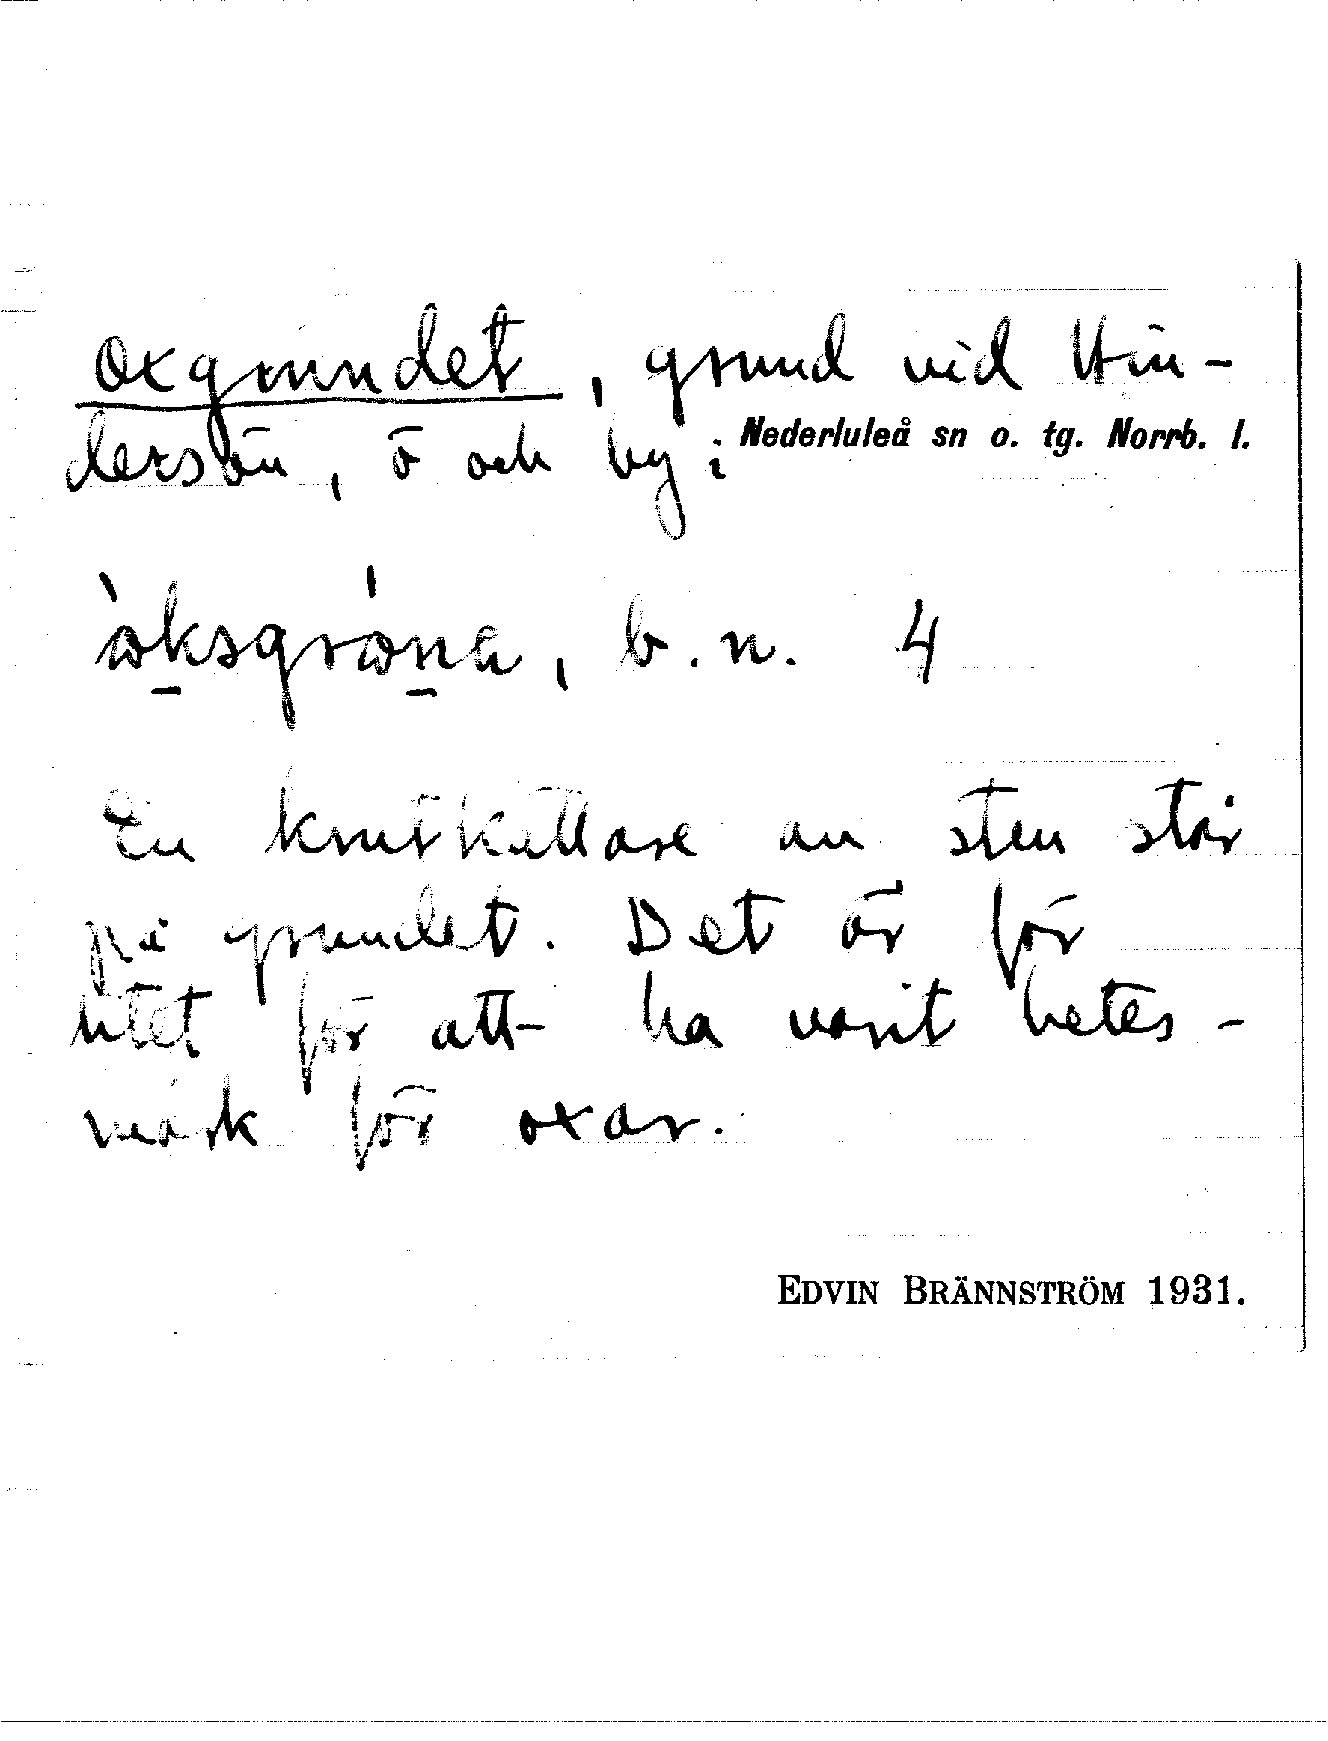 Oxgrundet, grund vid Hin-
dersön, ö och by i Nederluleå sn o. tg. Norrb. l.
òksgrö́na, b.n. 4
En krutkällare av sten står
på grundet. Det är för
litet för att ha varit betes-
mark för oxar.
EDVIN BRÄNNSTRÖM 1931.